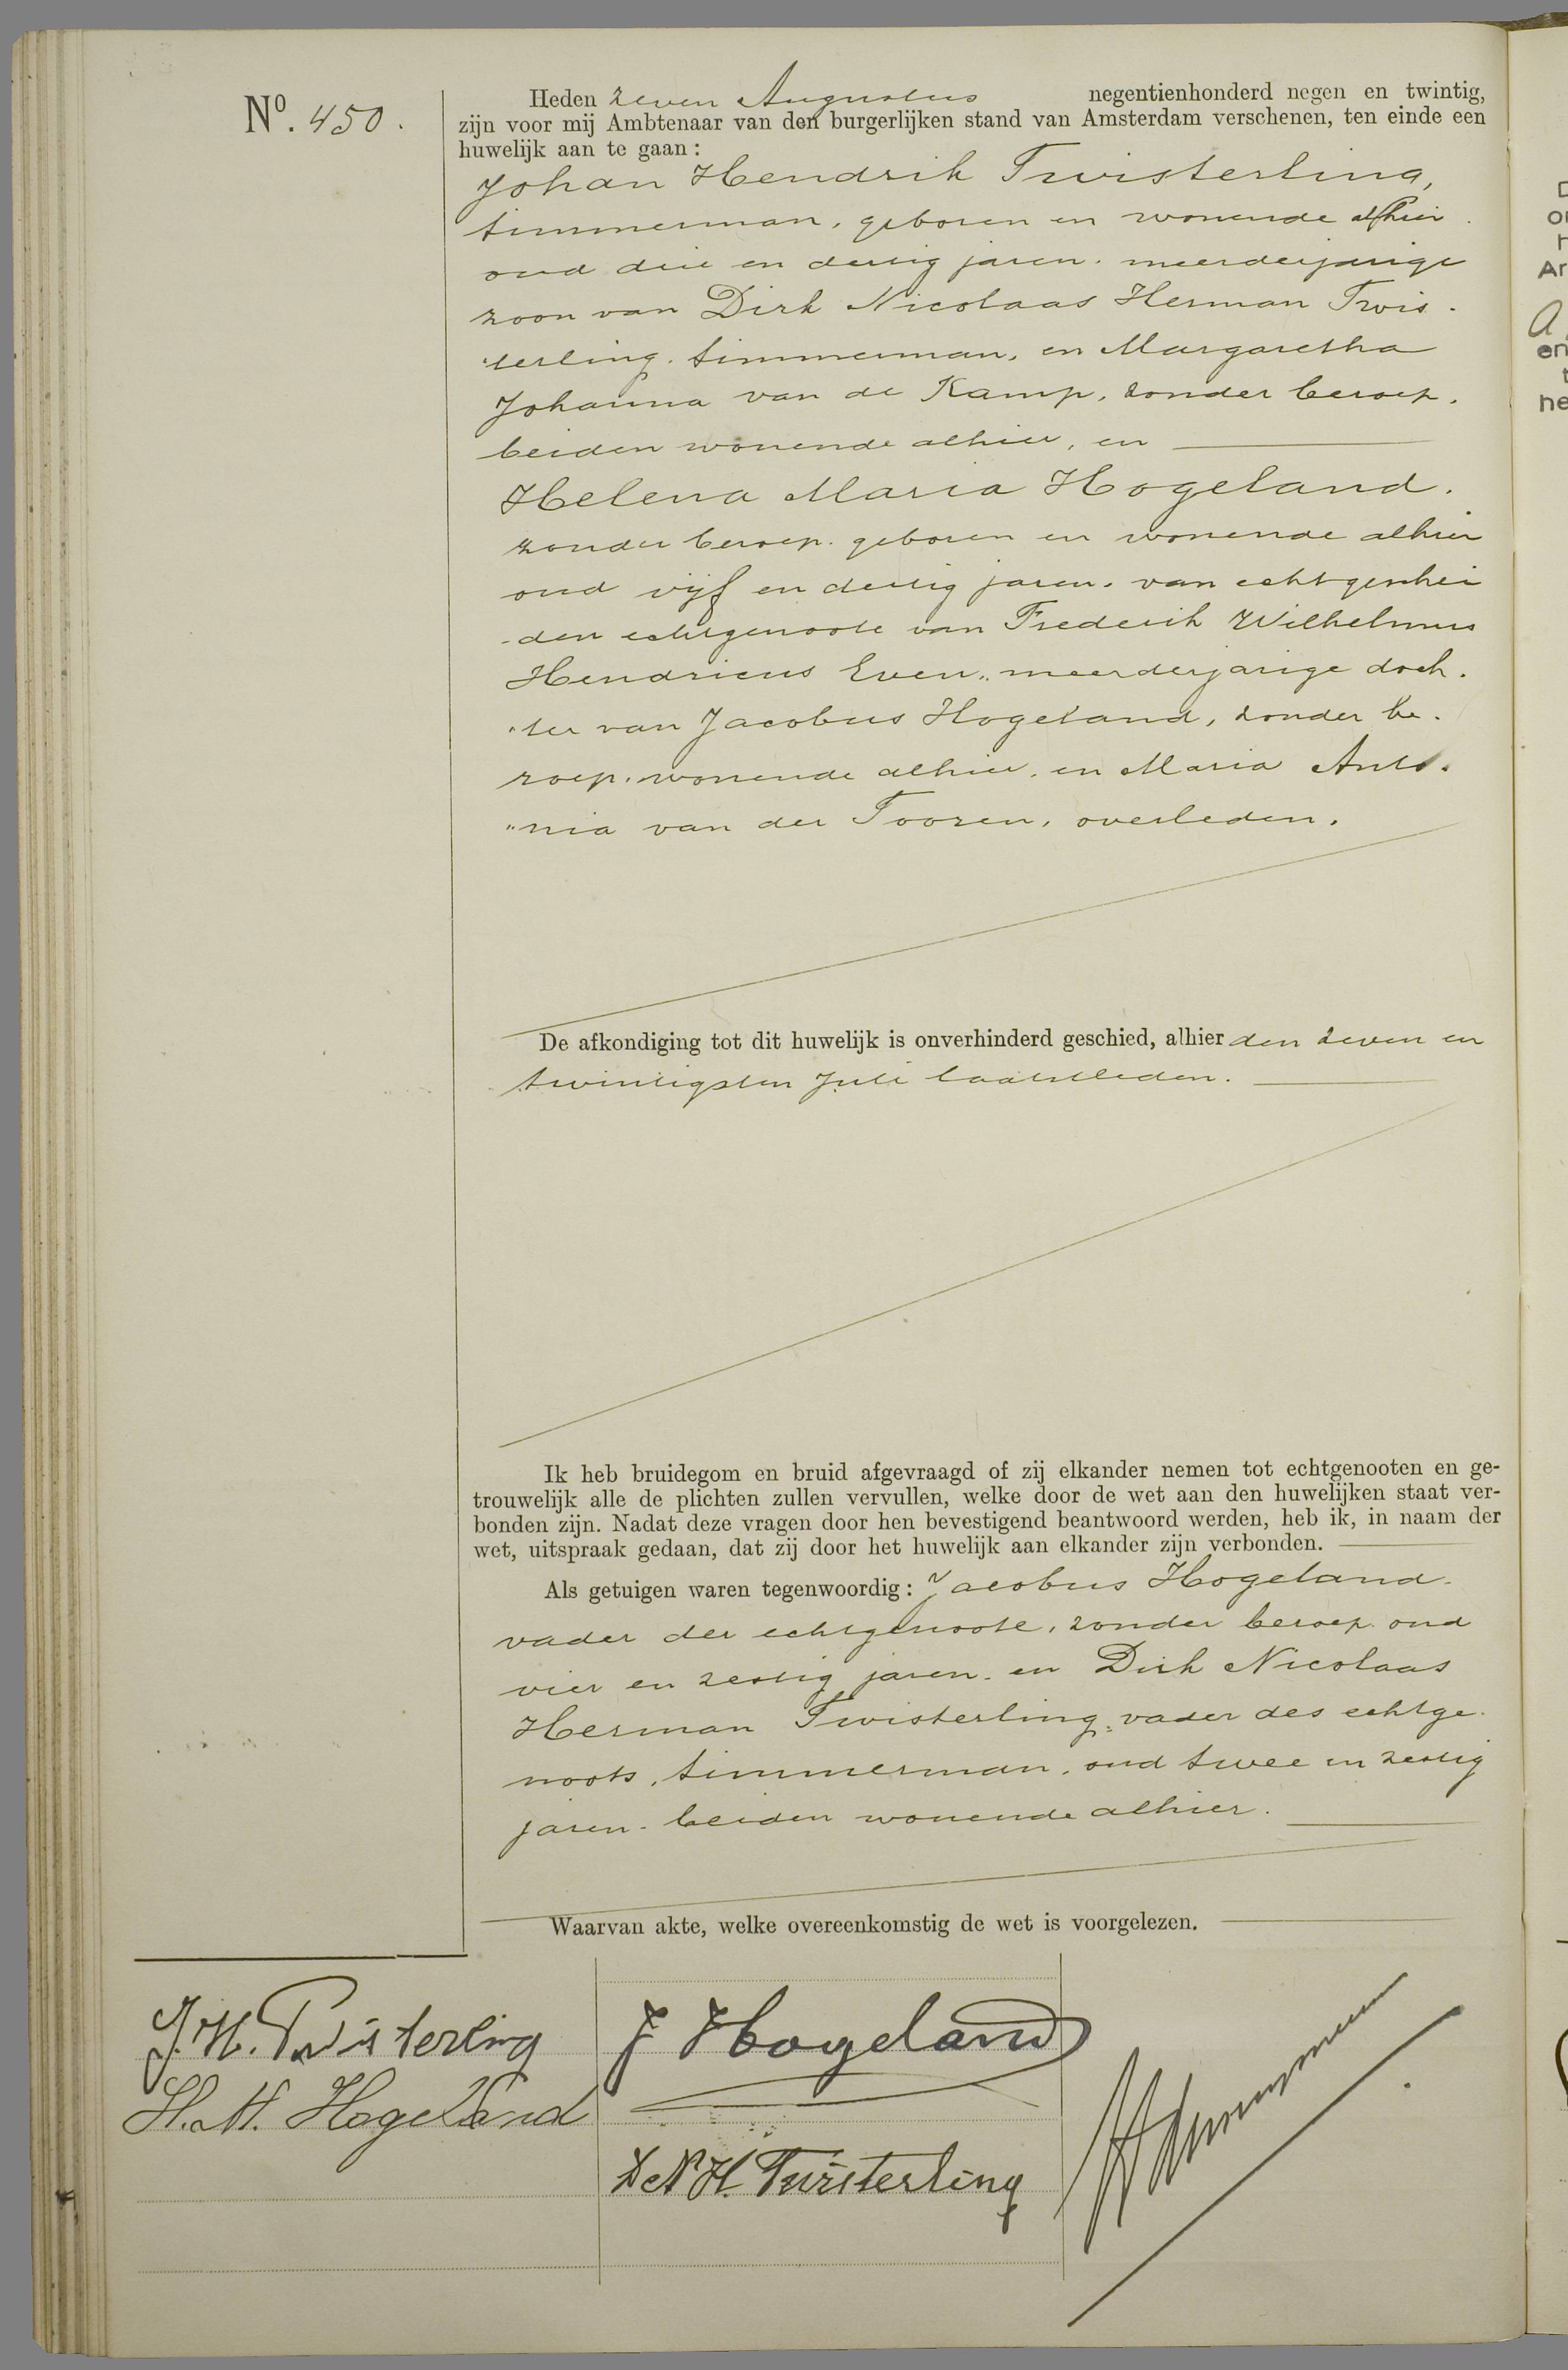 Nº. 450.
Heden zeven Augustus negentienhonderd negen en twintig,
zijn voor mij Ambtenaar van den burgerlijken stand van Amsterdam verschenen, ten einde een
huwelijk aan te gaan:
Johan Hendrik Twisterling,
timmerman, geboren en wonende alhier
oud drie en dertig jaren. meerderjarige
zoon van Dirk Nicolaas Herman Twis-
terling. timmerman, en Margaretha
Johanna van de Kamp, zonder beroep.
beiden wonende alhier, en
Helena Maria Hogeland.
zonder beroep. geboren en wonende alhier
oud vijf en dertig jaren. van echt geschei
-den echtgenoote van Frederik Wilhelmus
Hendricus Even,, meerderjarige doch.
"ter van Jacobus Hogeland, zonder be.
roep. wonende alhier. en Maria Anto.
"nia van der Tooren, overleden.
De afkondiging tot dit huwelijk is onverhinderd geschied, alhier den zeven en
twintigsten Juli laatstleden.
Ik heb bruidegom en bruid afgevraagd of zij elkander nemen tot echtgenooten en ge-
trouwelijk alle de plichten zullen vervullen, welke door de wet aan den huwelijken staat ver-
bonden zijn. Nadat deze vragen door hen bevestigend beantwoord werden, heb ik, in naam der
wet, uitspraak gedaan, dat zij door het huwelijk aan elkander zijn verbonden.
Als getuigen waren tegenwoordig: Jacobus Hogeland
vader der echtgenoote, zonder beroep. oud
vier en zestig jaren. en Dirk Nicolaas
Herman Twisterling, vader des echtge-
noots, timmerman, oud twee en zestig
jaren. beiden wonende alhier.
Waarvan akte, welke overeenkomstig de wet is voorgelezen.
J. H. Twisterling
H. M. Hogeland
J Hogeland
D N H. Twisterling